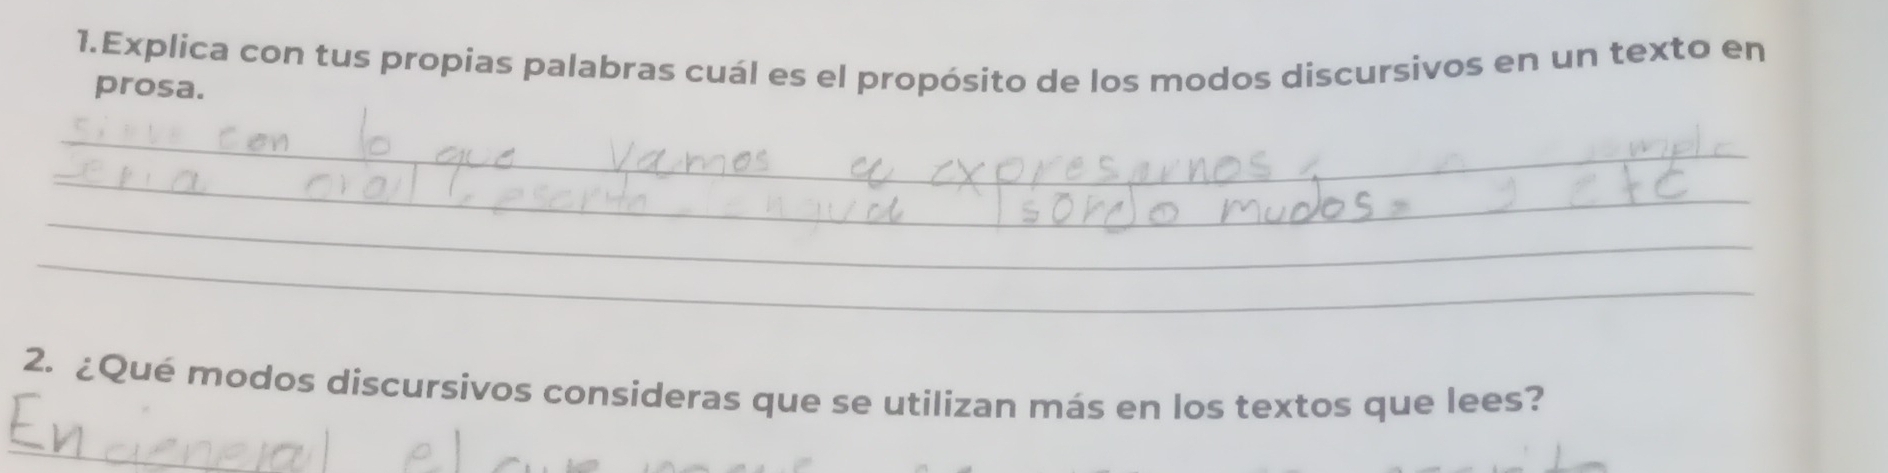 1.Explica con tus propias palabras cuál es el propósito de los modos discursivos en un texto en
prosa.
con lo que vamos a expresarnos
seria oral, escrito, lengua sordo mudos. y etc
2. ¿Qué modos discursivos consideras que se utilizan más en los textos que lees?
En general el que